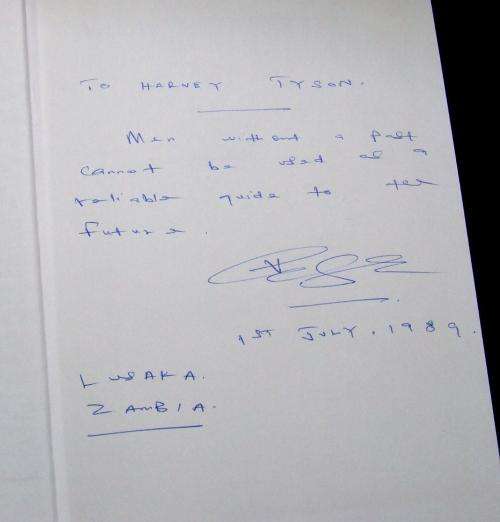 TO HARVEY TYSON.
Men without a past
cannot be used as a
reliable guide to the
future.
1ST JULY. 1989.
LUSAKA.
ZAMBIA.